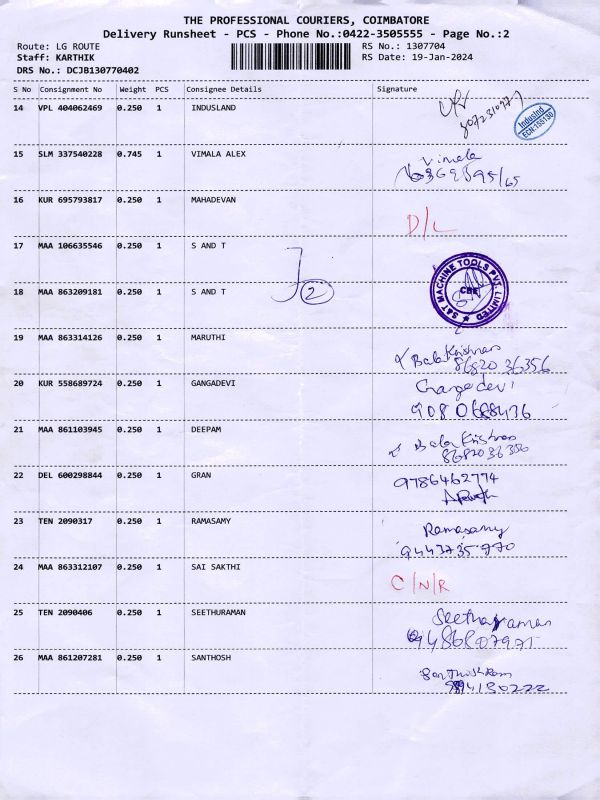 THE PROFESSIONAL COURIERS, COIMBATORE
Delivery Runsheet - PCS - Phone No.:0422-3505555 - Page No.:2
Route: LG ROUTE RS No.: 1307704
Staff: KARTHIK RS Date: 19-Jan-2024
DRS No.: DCJB130770402
S No Consignment No Weight PCS Consignee Details Signature
14 VPL 404062469 0.250 1 INDUSLAND
IndusInd
15 SLM 337540228 0.745 1 VIMALA ALEX Vimala
16 KUR 695793817 0.250 1 MAHADEVAN D/L
17 MAA 106635546 0.250 1 S AND T
2
18 MAA 863209181 0.250 1 S AND T S&T MACHINE TOOLS PVT. LIMITED CBE
19 MAA 863314126 0.250 1 MARUTHI Bala Krishnan
86820 36356
20 KUR 558689724 0.250 1 GANGADEVI Ganga devi
21 MAA 861103945 0.250 1 DEEPAM Bala Krishnan
86820 36356
22 DEL 600298844 0.250 1 GRAN 9786462774
23 TEN 2090317 0.250 1 RAMASAMY Ramasamy
9443735770
24 MAA 863312107 0.250 1 SAI SAKTHI C/N/R
25 TEN 2090406 0.250 1 SEETHURAMAN Seetharaman
26 MAA 861207281 0.250 1 SANTHOSH